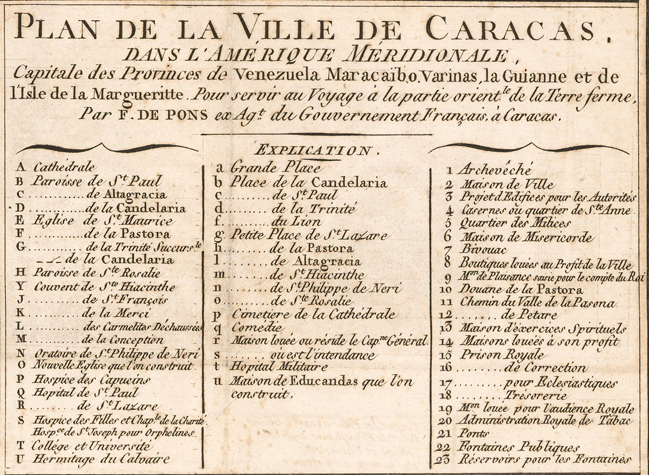 PLAN DE LA VILLE DE CARACAS,
DANS L'AMÉRIQUE MÉRIDIONALE,
Capitale des Provinces de Venezuela Maracaïbo, Varinas, la Guianne et de
l'Isle de la Margueritte. Pour servir au Voyage à la partie orient.le de la Terre ferme,
Par F. DE PONS ex Ag.t du Gouvernement Français, à Caracas.
EXPLICATION.
A Cathédrale
B Paroisse de S.t Paul
C ........ de Altagracia
D ........ de la Candelaria
E Eglise de S.t Maurice
F ........ de la Pastora
G ........ de la Trinité Succurs.le
de la Candelaria
H Paroisse de S.te Rosalie
Y Couvent de S.te Hiacinthe
J ........ de S.t François
K ........ de la Merci
L ........ des Carmelites Déchaussées
M ........ de la Conception
N Oratoire de S.t Philippe de Neri
O Nouvelle Eglise que l'on construit
P Hospice des Capucins
Q Hopital de S.t Paul
R ........ de S.t Lazare
S Hospice des Filles et Chap.le de la Charité
Hosp.ce de S.t Joseph pour Orphelines
T Collége et Université
U Hermitage du Calvaire
a Grande Place
b Place de la Candelaria
c ........ de S.t Paul
d ........ de la Trinité
f ........ du Lion
g Petite Place de S.t Lazare
h ........ de la Pastora
l ........ de Altagracia
m ........ de S.t Hiacinthe
n ........ de S.t Philippe de Neri
o ........ de S.te Rosalie
p Cimetiere de la Cathédrale
q Comedie
r Maison louée ou réside le Cap.ne Général
s ........ ou est l'intendance
t Hopital Militaire
u Maison de Educandas que l'on
construit.
1 Archevêché
2 Maison de Ville
3 Projet d'Edifices pour les Autorités
4 Casernes ou quartier de S.te Anne
5 Quartier des Milices
6 Maison de Misericorde
7 Bivouac
8 Boutiques louées au Profit de la Ville
9 M.on de Plaisance saisie pour le compte du Roi
10 Douane de la Pastora
11 Chemin du Valle de la Pasona
12 ........ de Petare
13 Maison d'éxercices Spirituels
14 Maisons louées à son profit
15 Prison Royale
16 ........ de Correction
17 ........ pour Eclesiastiques
18 ........ Trésorerie
19 M.on louée pour l'audience Royale
20 Administration Royale de Tabac
21 Ponts
22 Fontaines Publiques
23 Réservoirs pour les Fontaines